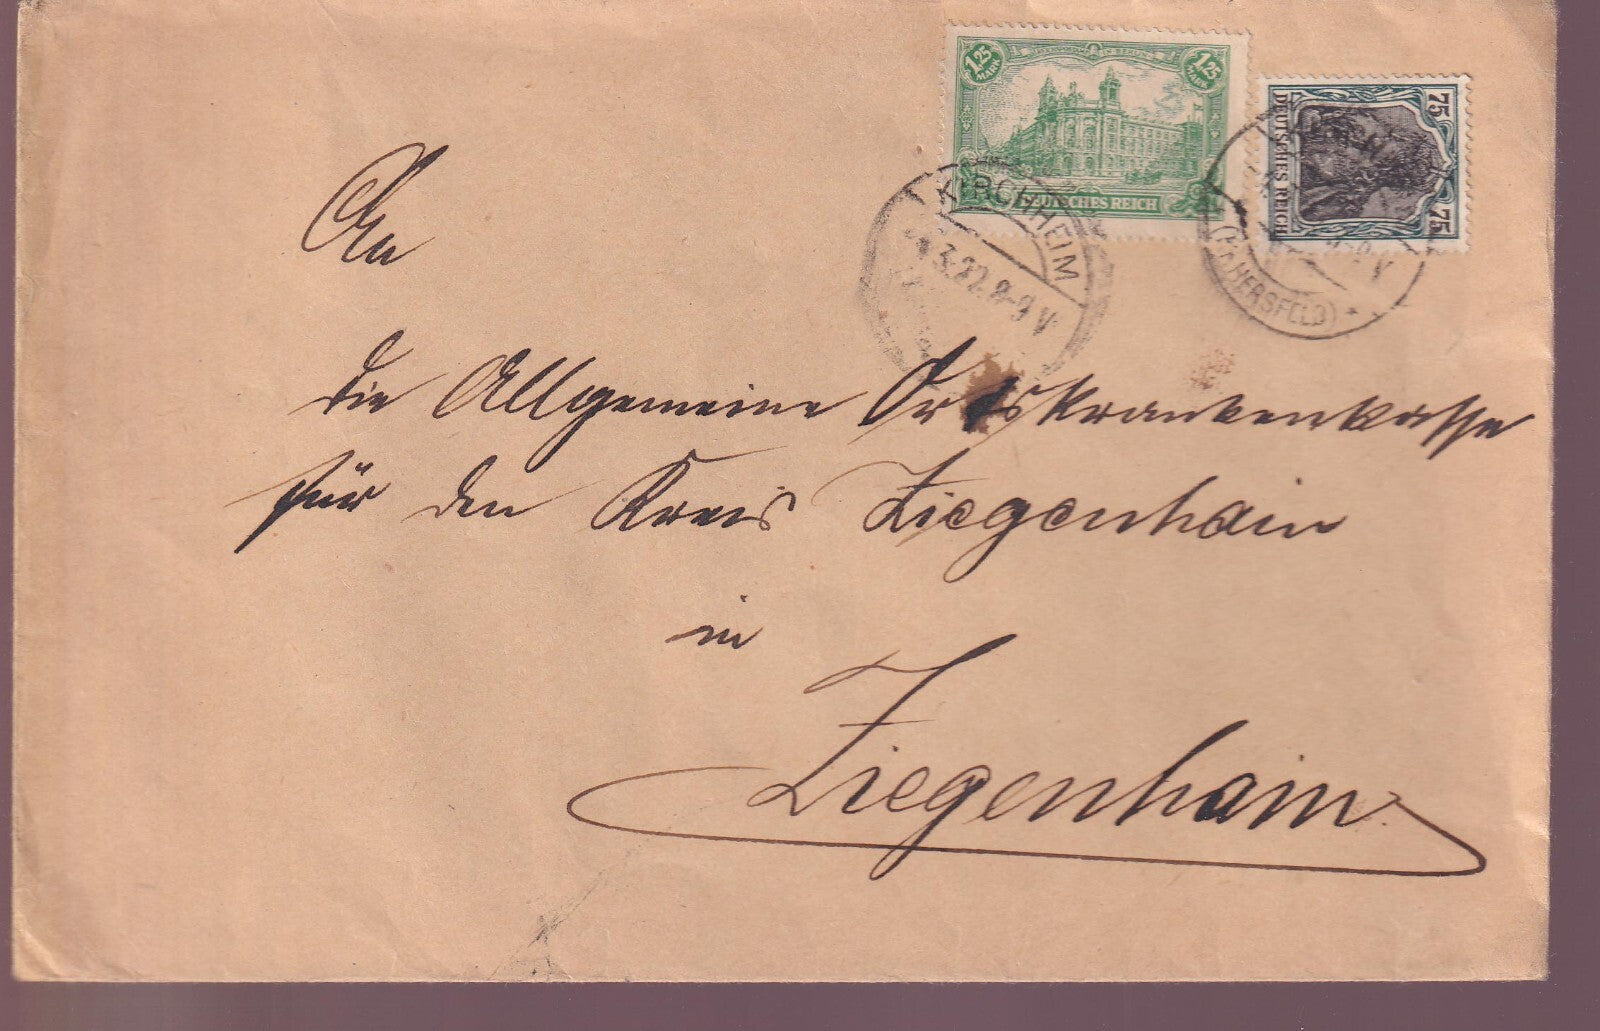 1,25 MARK 1,25 MARK
DEUTSCHES REICH
75 75
DEUTSCHES REICH
KIRCHHEIM
3.22. 8-9 V
HERSFELD) *
An
die Allgemeine Ortskrankenkasse
für den Kreis Ziegenhain
in
Ziegenhain